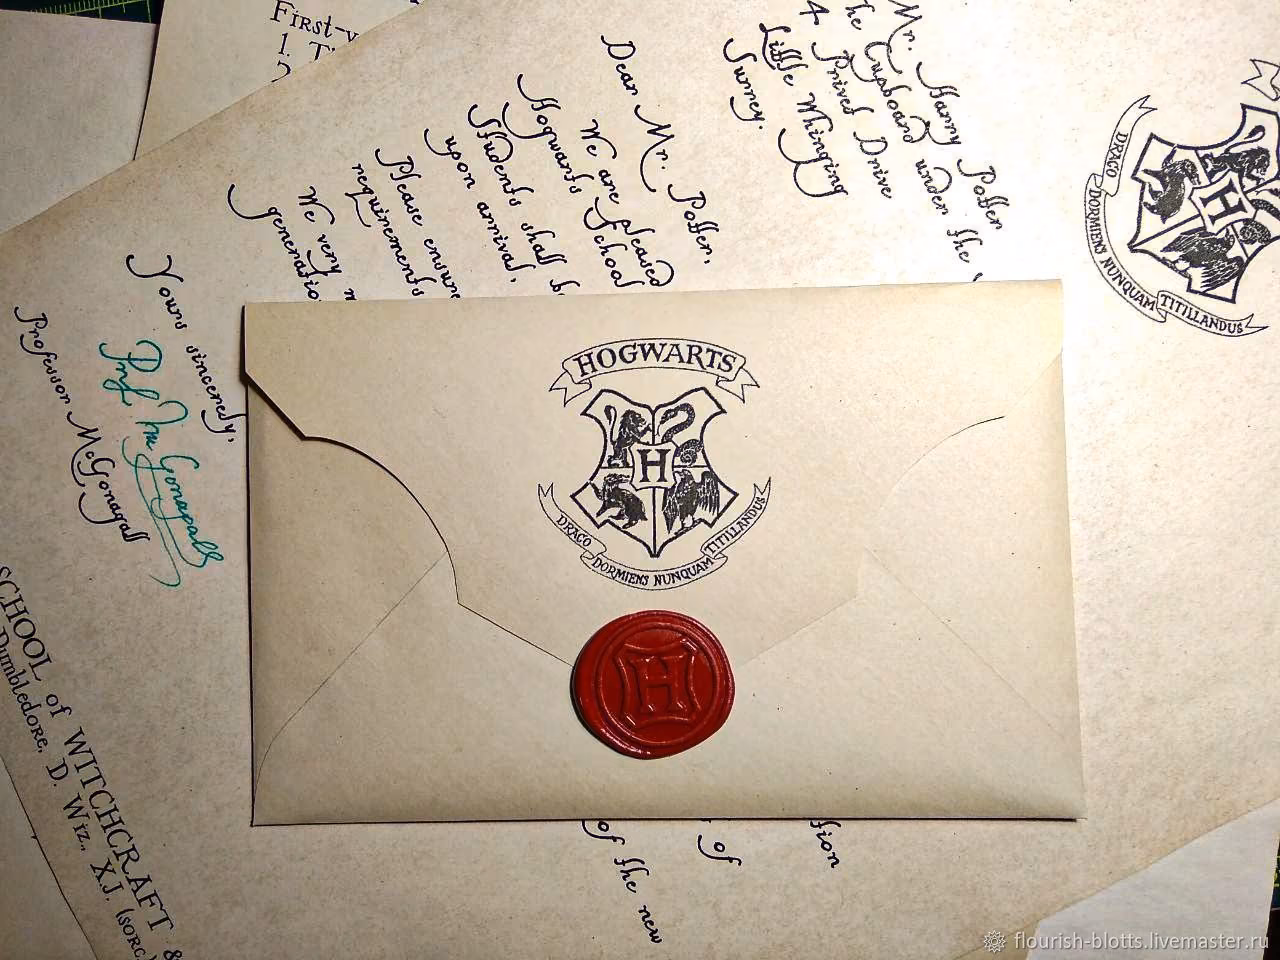 First-y
1. T
Mr. Harry Potter
he Cupboard under the
4 Privet Drive
Little Whinging
Surrey.
Dear Mr. Potter,
We are pleased
Hogwarts School
Students shall b
upon arrival,
Please ensure
requirements
We very m
generatio
Yours sincerely,
Prof McGonagall
Professor McGonagall
SCHOOL of WITCHCRAFT &
Dumbledore, D. Wiz., X.J. (sorc
DRACO DORMIENS NUNQUAM TITILLANDUS
H
HOGWARTS
H
DRACO DORMIENS NUNQUAM TITILLANDUS
H
of the new
of
sion
flourish-blotts.livemaster.ru